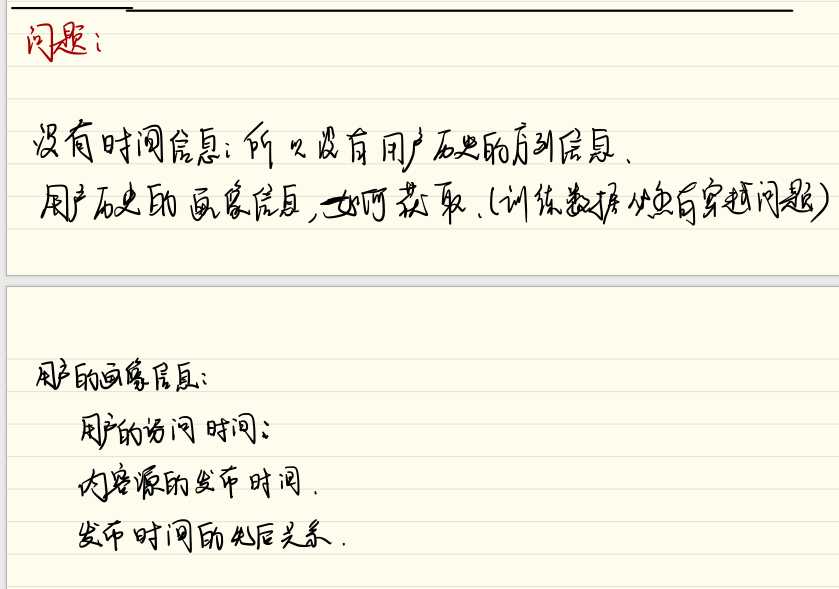 问题：
没有时间信息；所以没有用户历史的序列信息.
用户历史的画像信息,如何获取.(训练数据必然有穿越问题)
用户的画像信息：
用户的访问时间：
内容源的发布时间.
发布时间的先后关系.